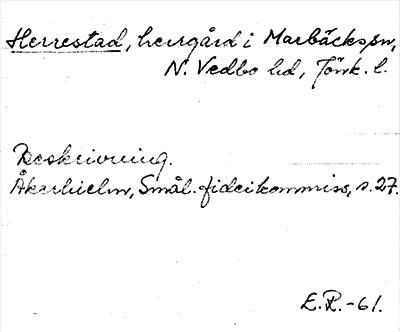 Herrestad, herrgård i Marbäcks sn,
N. Vedbo hd, Jönk. l.
Beskrivning.
Åkerhielm, Smål. fideikommiss, s. 27.
E.R.-61.